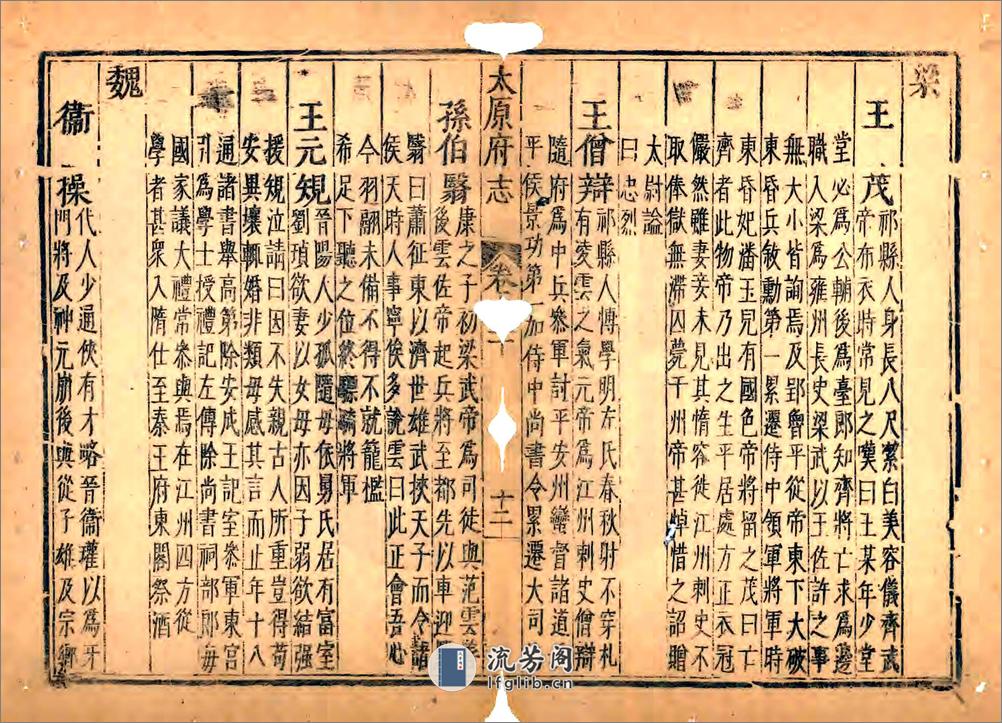 梁
王茂祁縣人身長八尺潔白美容儀齊武
帝布衣時常見之嘆曰王某年少堂
堂必為公輔後為臺郎知齊將亡求為邊
職入梁為雍州長史梁武以王佐許之事
無大小皆詢焉及郢魯平從帝東下大破
東昏兵敘勳第一累遷侍中領軍將軍時
東昏妃潘玉兒有國色帝將留之茂曰亡
齊者此物帝乃出之生平居處方正衣冠
儼然雖妻妾未見其惰容徙江州刺史不
取俸獄無滯囚薨于州帝甚悼惜之詔贈
太尉諡
曰忠烈
王僧辯祁縣人博學明左氏春秋射不穿札
有陵雲之氣元帝為江州刺史僧辯
隨府為中兵參軍討平安州蠻督諸道
平侯景功第一加侍中尚書令累遷大司
太原府志
卷
十二
孫伯翳康之子初梁武帝為司徒與范雲
後雲佐帝起兵將至都先以車迎
翳曰蕭征東以濟世雄武挾天子而令諸
侯天時人事寧俟多說雲曰此正會吾心
今羽翮未備不得不就籠檻
希足下聽之位終驃騎將軍
王元規晉陽人少孤隨母依舅氏居有富室
劉瑱欲妻以女母亦因子弱欲結強
援規泣請曰因不失親古人所重豈得苟
安異壤輒婚非類母感其言而止年十八
通諸書舉高第除安成王記室參軍東宮
引為學士授禮記左傳除尚書祠部郎每
國家議大禮常參與焉在江州四方從
學者甚衆入隋仕至秦王府東閣祭酒
魏
衞操代人少通俠有才略晉衞瓘以為牙
門將及神元崩後與從子雄及宗鄉
流芳阁
lfglib.cn